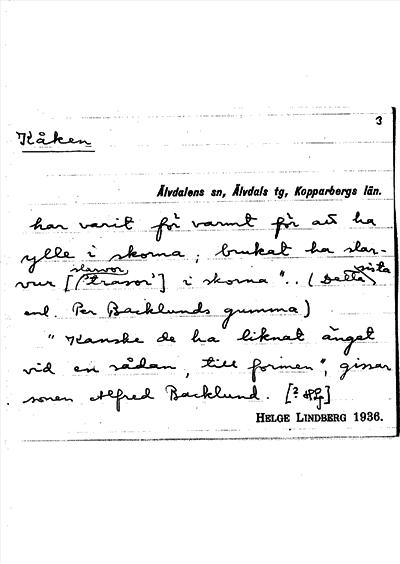 3
Kåken
Älvdalens sn, Älvdals tg, Kopparbergs län.
har varit för varmt för att ha
ylle i skorna, brukat ha slar-
vur [slarvor 'trasor'] i skorna".. (Detta sista
enl. Per Backlunds gumma)
"Kanske de ha liknat änget
vid en sådan, till formen", gissar
sonen Alfred Backlund. [?
HELGE LINDBERG 1936.